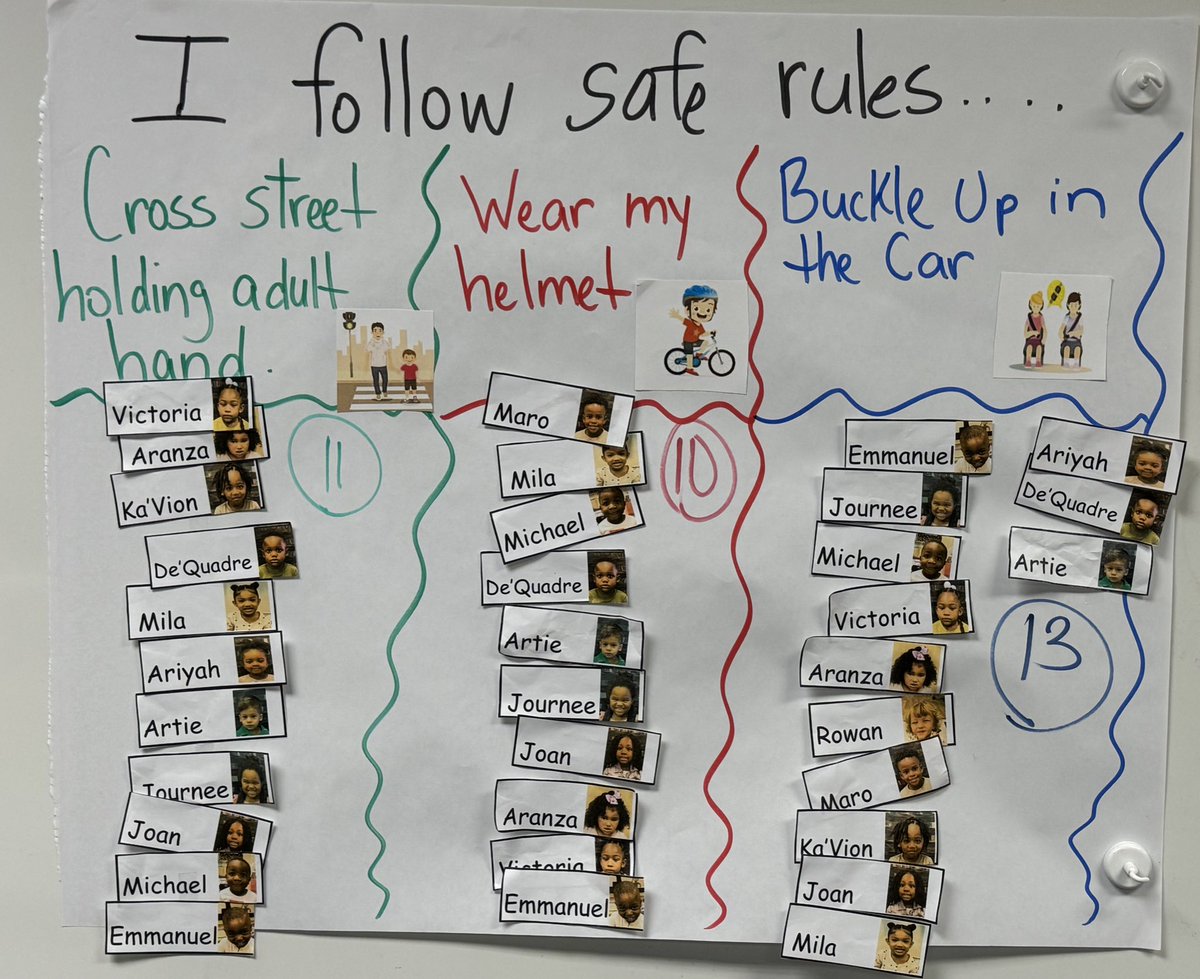 I follow safe rules.....
Cross street
holding adult
hand.
11
Victoria
Aranza
Ka'Vion
De'Quadre
Mila
Ariyah
Artie
Journee
Joan
Michael
Emmanuel
Wear my
helmet
10
Maro
Mila
Michael
De'Quadre
Artie
Journee
Joan
Aranza
Victoria
Emmanuel
Buckle Up in
the Car
Emmanuel
Journee
Michael
Victoria
Aranza
Rowan
Maro
Ka'Vion
Joan
Mila
Ariyah
De'Quadre
Artie
13